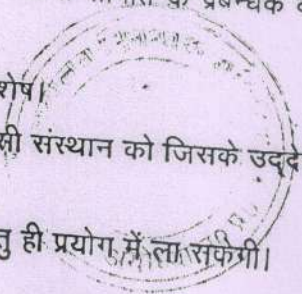 के प्रबन्धक
शेष।
सी संस्थान को जिसके उद्दे
तु ही प्रयोग में ला सकेगी।